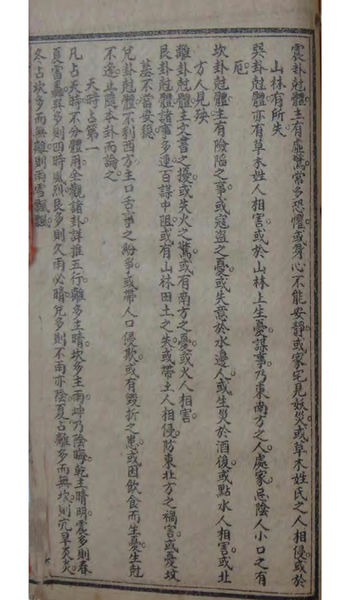 震卦尅體主有虛驚常多恐懼或身心不能安靜或家宅見妖災或草木姓氏之人相侵或於
山林有所失
巽卦尅體亦有草木姓人相害或於山林上生憂謀事乃東南方之人處家忌陰人小口之有
厄
坎卦尅體主有險陷之事或寇盜之憂或失意於水邊人或生災於酒後或點水人相害或北
方人見殃
離卦尅體主文書之擾或失火之驚或有南方之憂或火人相害
艮卦尅體諸事多違百謀中阻或有山林田土之失或帶土人相侵防東北方之禍害或憂墳
墓不當安穩
兌卦尅體不利西方主口舌事之紛爭或帶人口侵欺或有毀折之患或因飲食而生憂生尅
不逢止隨本卦而論之
天時占第一
凡占天時不分體用全觀諸卦詳推五行離多主晴坎多主雨坤乃陰晦乾主晴明震多則春
夏雷轟巽多則四時風烈艮多則久雨必晴兌多則不雨亦陰夏占離多而無坎則亢旱炎炎
冬占坎多而無離則雨雪飄飄